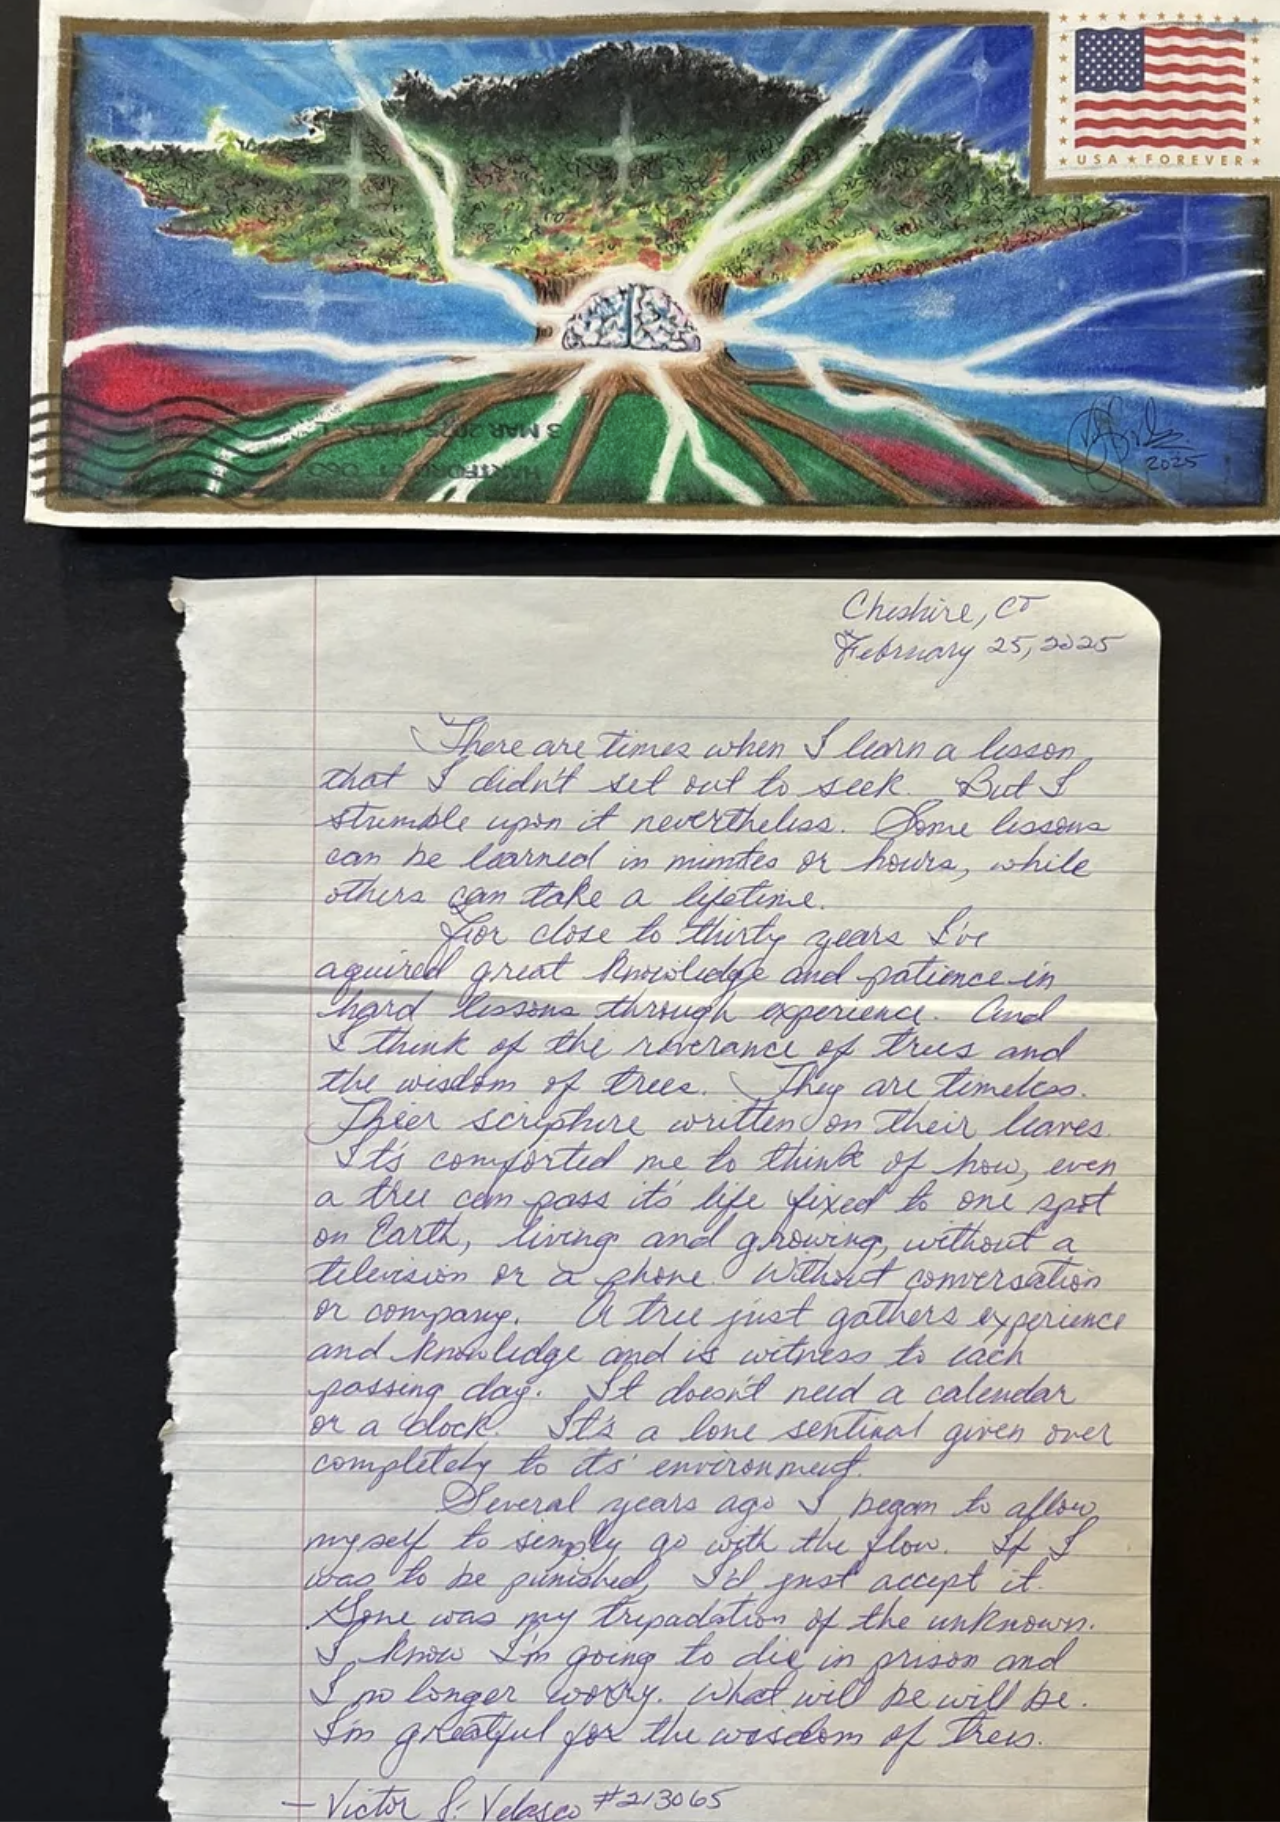 USA ★ FOREVER
3 MAR 2025
HARTFORD CT 060
2025
Cheshire, CT
February 25, 2025
There are times when I learn a lesson
that I didn't set out to seek. But I
stumble upon it nevertheless. Some lessons
can be learned in mintes or hours, while
others can take a lifetime.
For close to thirty years I've
aquired great knowledge and patience in
hard lessons through experience. And
I think of the reverance of trees and
the wisdom of trees. They are timeless.
Thier scripture written on their leaves.
It's comforted me to think of how, even
a tree can pass it's life fixed to one spot
on Earth, living and growing, without a
television or a phone. Without conversation
or company. A tree just gathers experience
and knowledge and is witness to each
passing day. It doesn't need a calendar
or a clock. It's a lone sentinal given over
completely to its' environment.
Several years ago I began to allow
myself to simply go with the flow. If I
was to be punished, I'd just accept it.
Gone was my tripadation of the unknown.
I know I'm going to die in prison and
I no longer worry. What will be will be.
I'm greatful for the wisdom of trees.
— Victor S. Velasco #213065